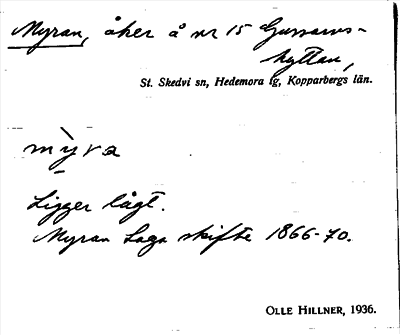 Myran, åker å nr 15 Gussarvs-
hyttan,
St. Skedvi sn, Hedemora tg, Kopparbergs län.
mỳra
Ligger lågt.
Myran Laga skifte 1866-70.
OLLE HILLNER, 1936.